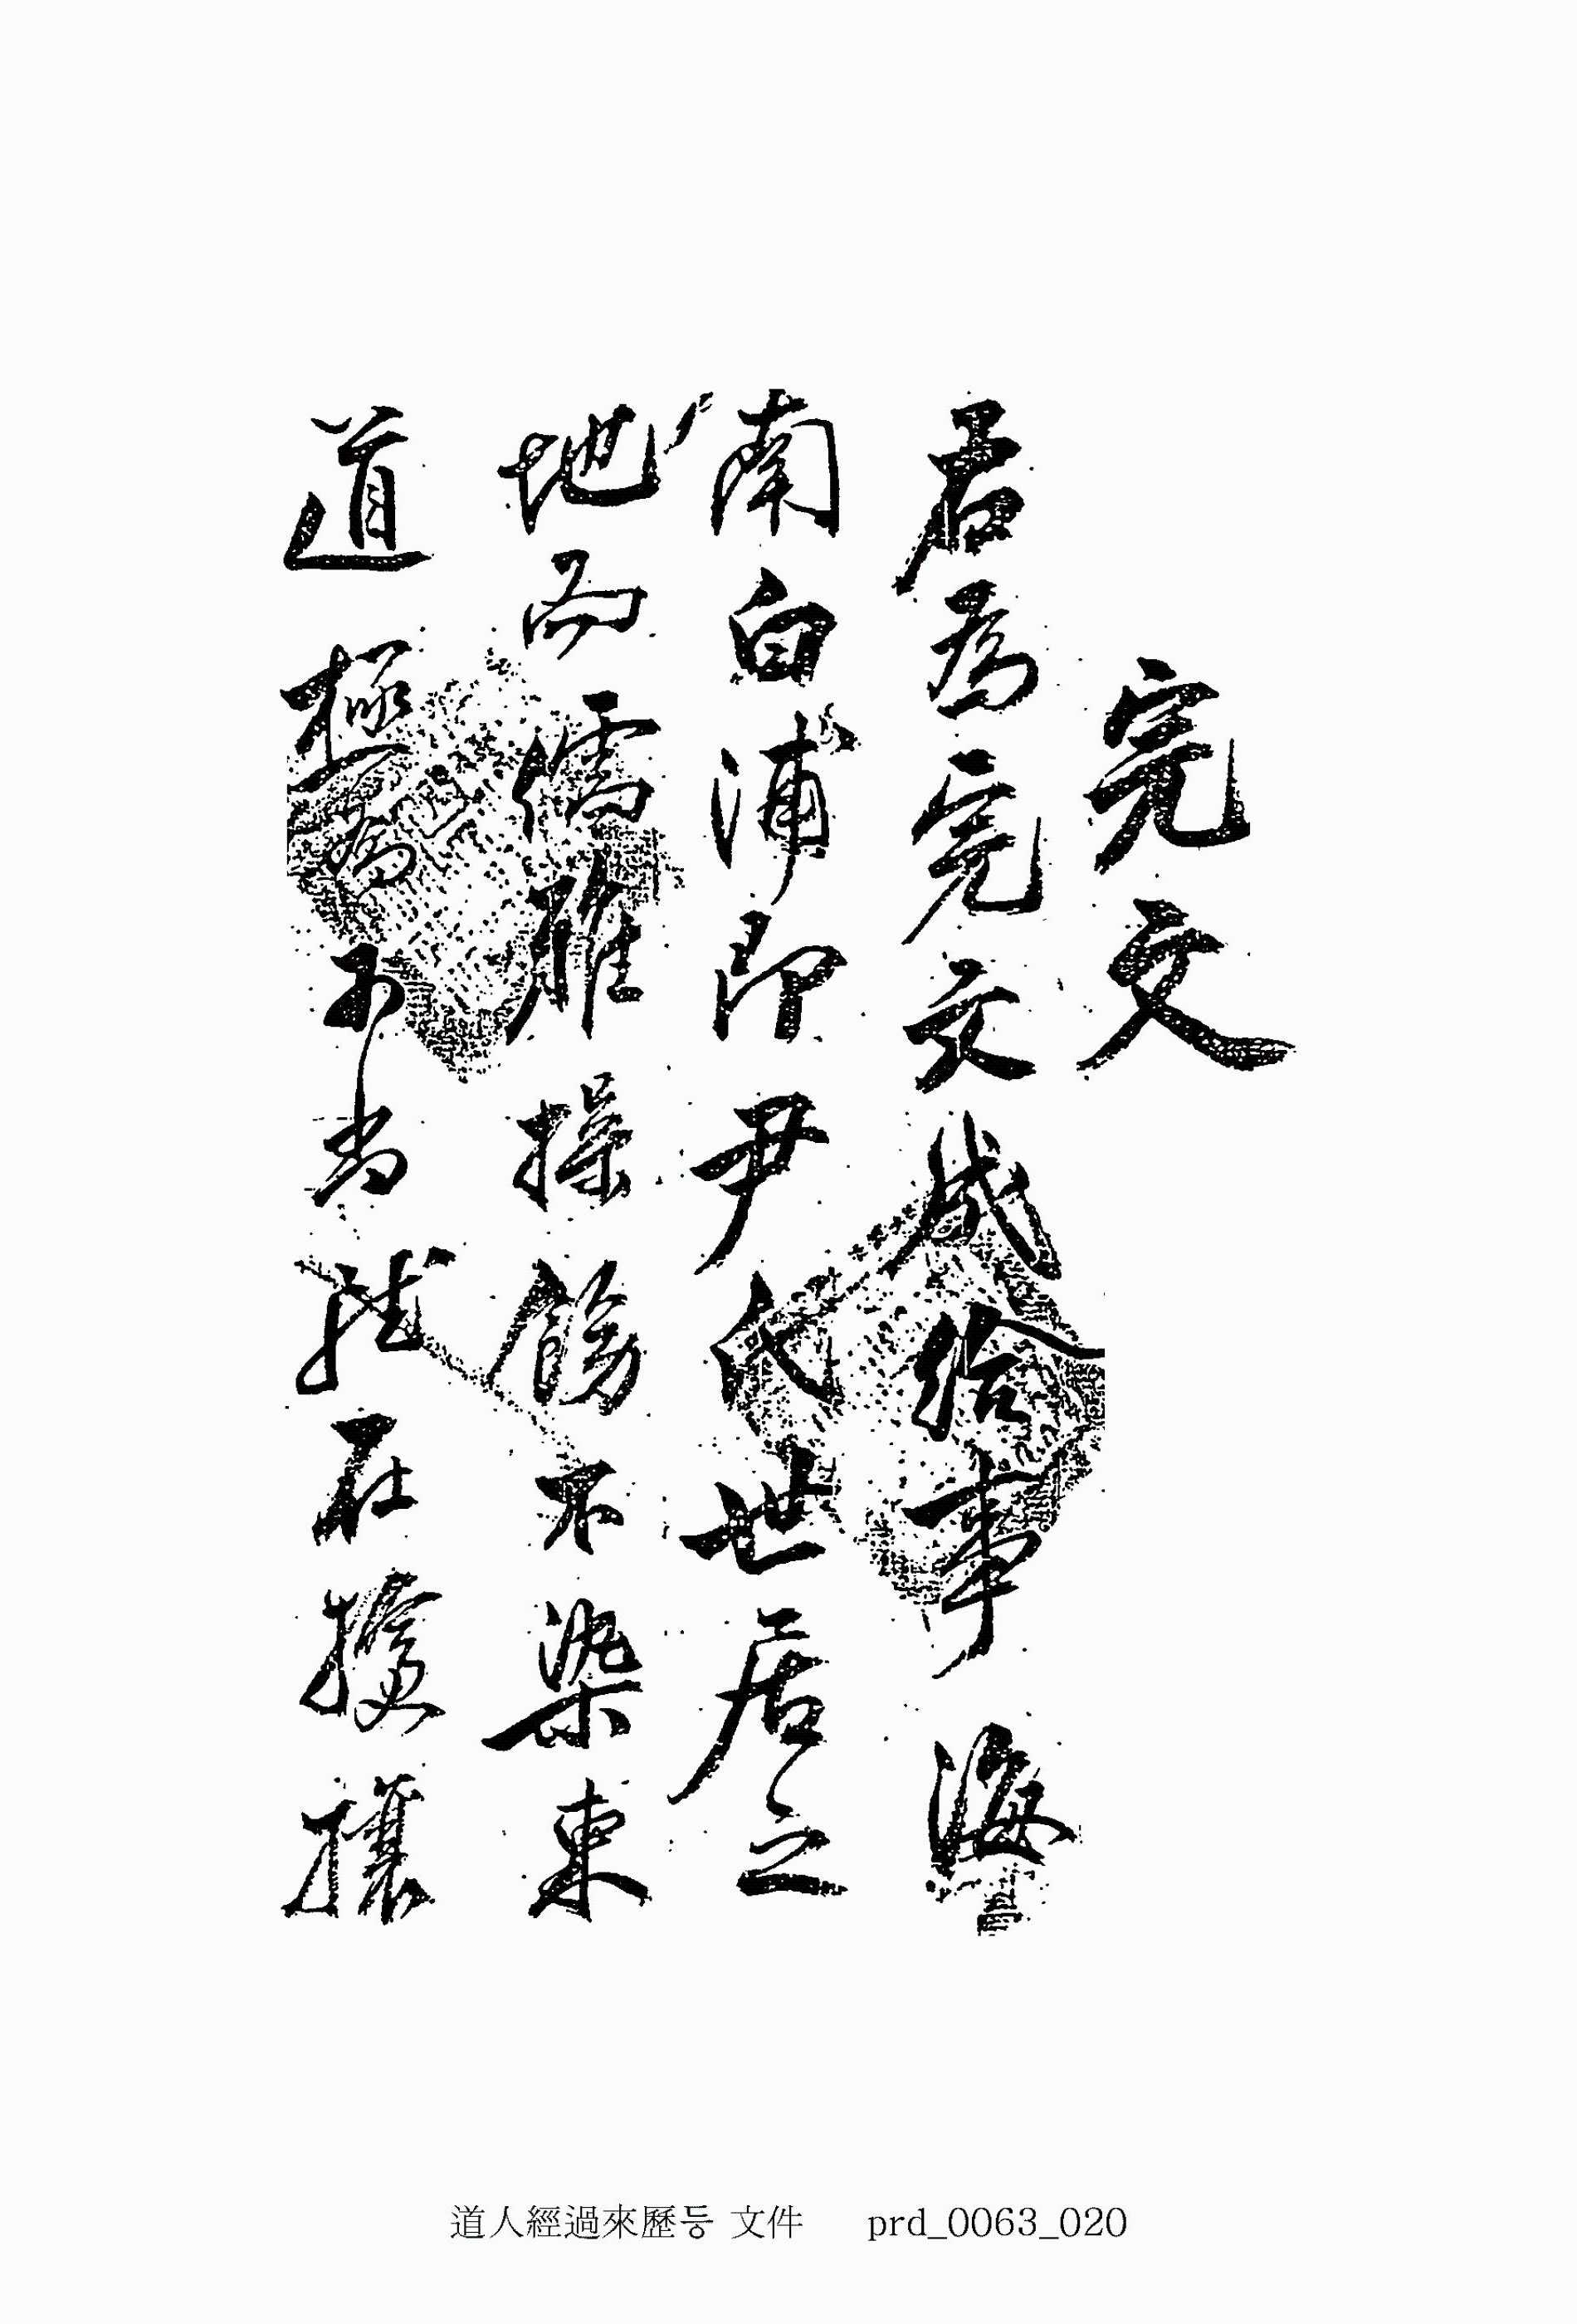 完文
右爲完文成給事 海
南白浦即尹氏世居之
地而儒雅操飭不染東
道 極爲可尚 在擾攘
道人經過來歷등 文件 prd_0063_020